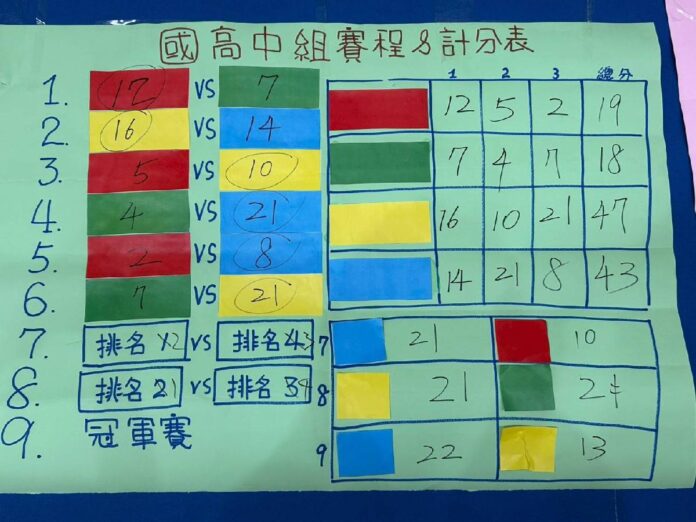 國高中組賽程&計分表
1. 12 VS 7
2. 16 VS 14
3. 5 VS 10
4. 4 VS 21
5. 2 VS 8
6. 7 VS 21
7. 排名 2 VS 排名 3
8. 排名 1 VS 排名 4
9. 冠軍賽
1 2 3 總分
12 5 2 19
7 4 7 18
16 10 21 47
14 21 8 43
7 21 10
8 21
9 22 13